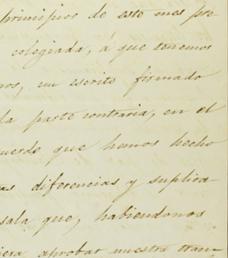 principios de este mes pre
colegiada, á que tenemos
nos, un escrito firmado
la parte contraria, en el
uerdo que hemos hecho
as diferencias y suplica-
sala que, habiendonos
iera aprobar nuestra tran-